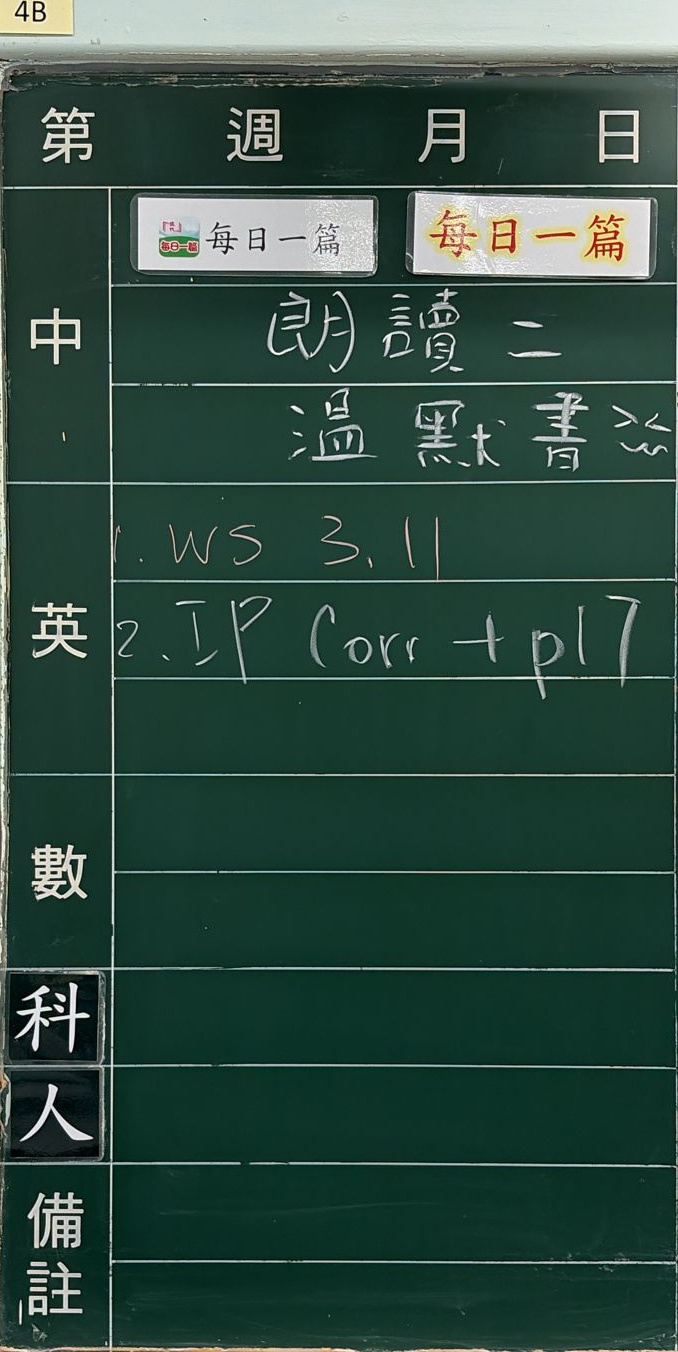 4B
第 週 月 日
每日一篇 每日一篇 每日一篇
中
朗讀二
溫默書
英
1. WS 3.11
2. IP Corr + p17
數
科
人
備註